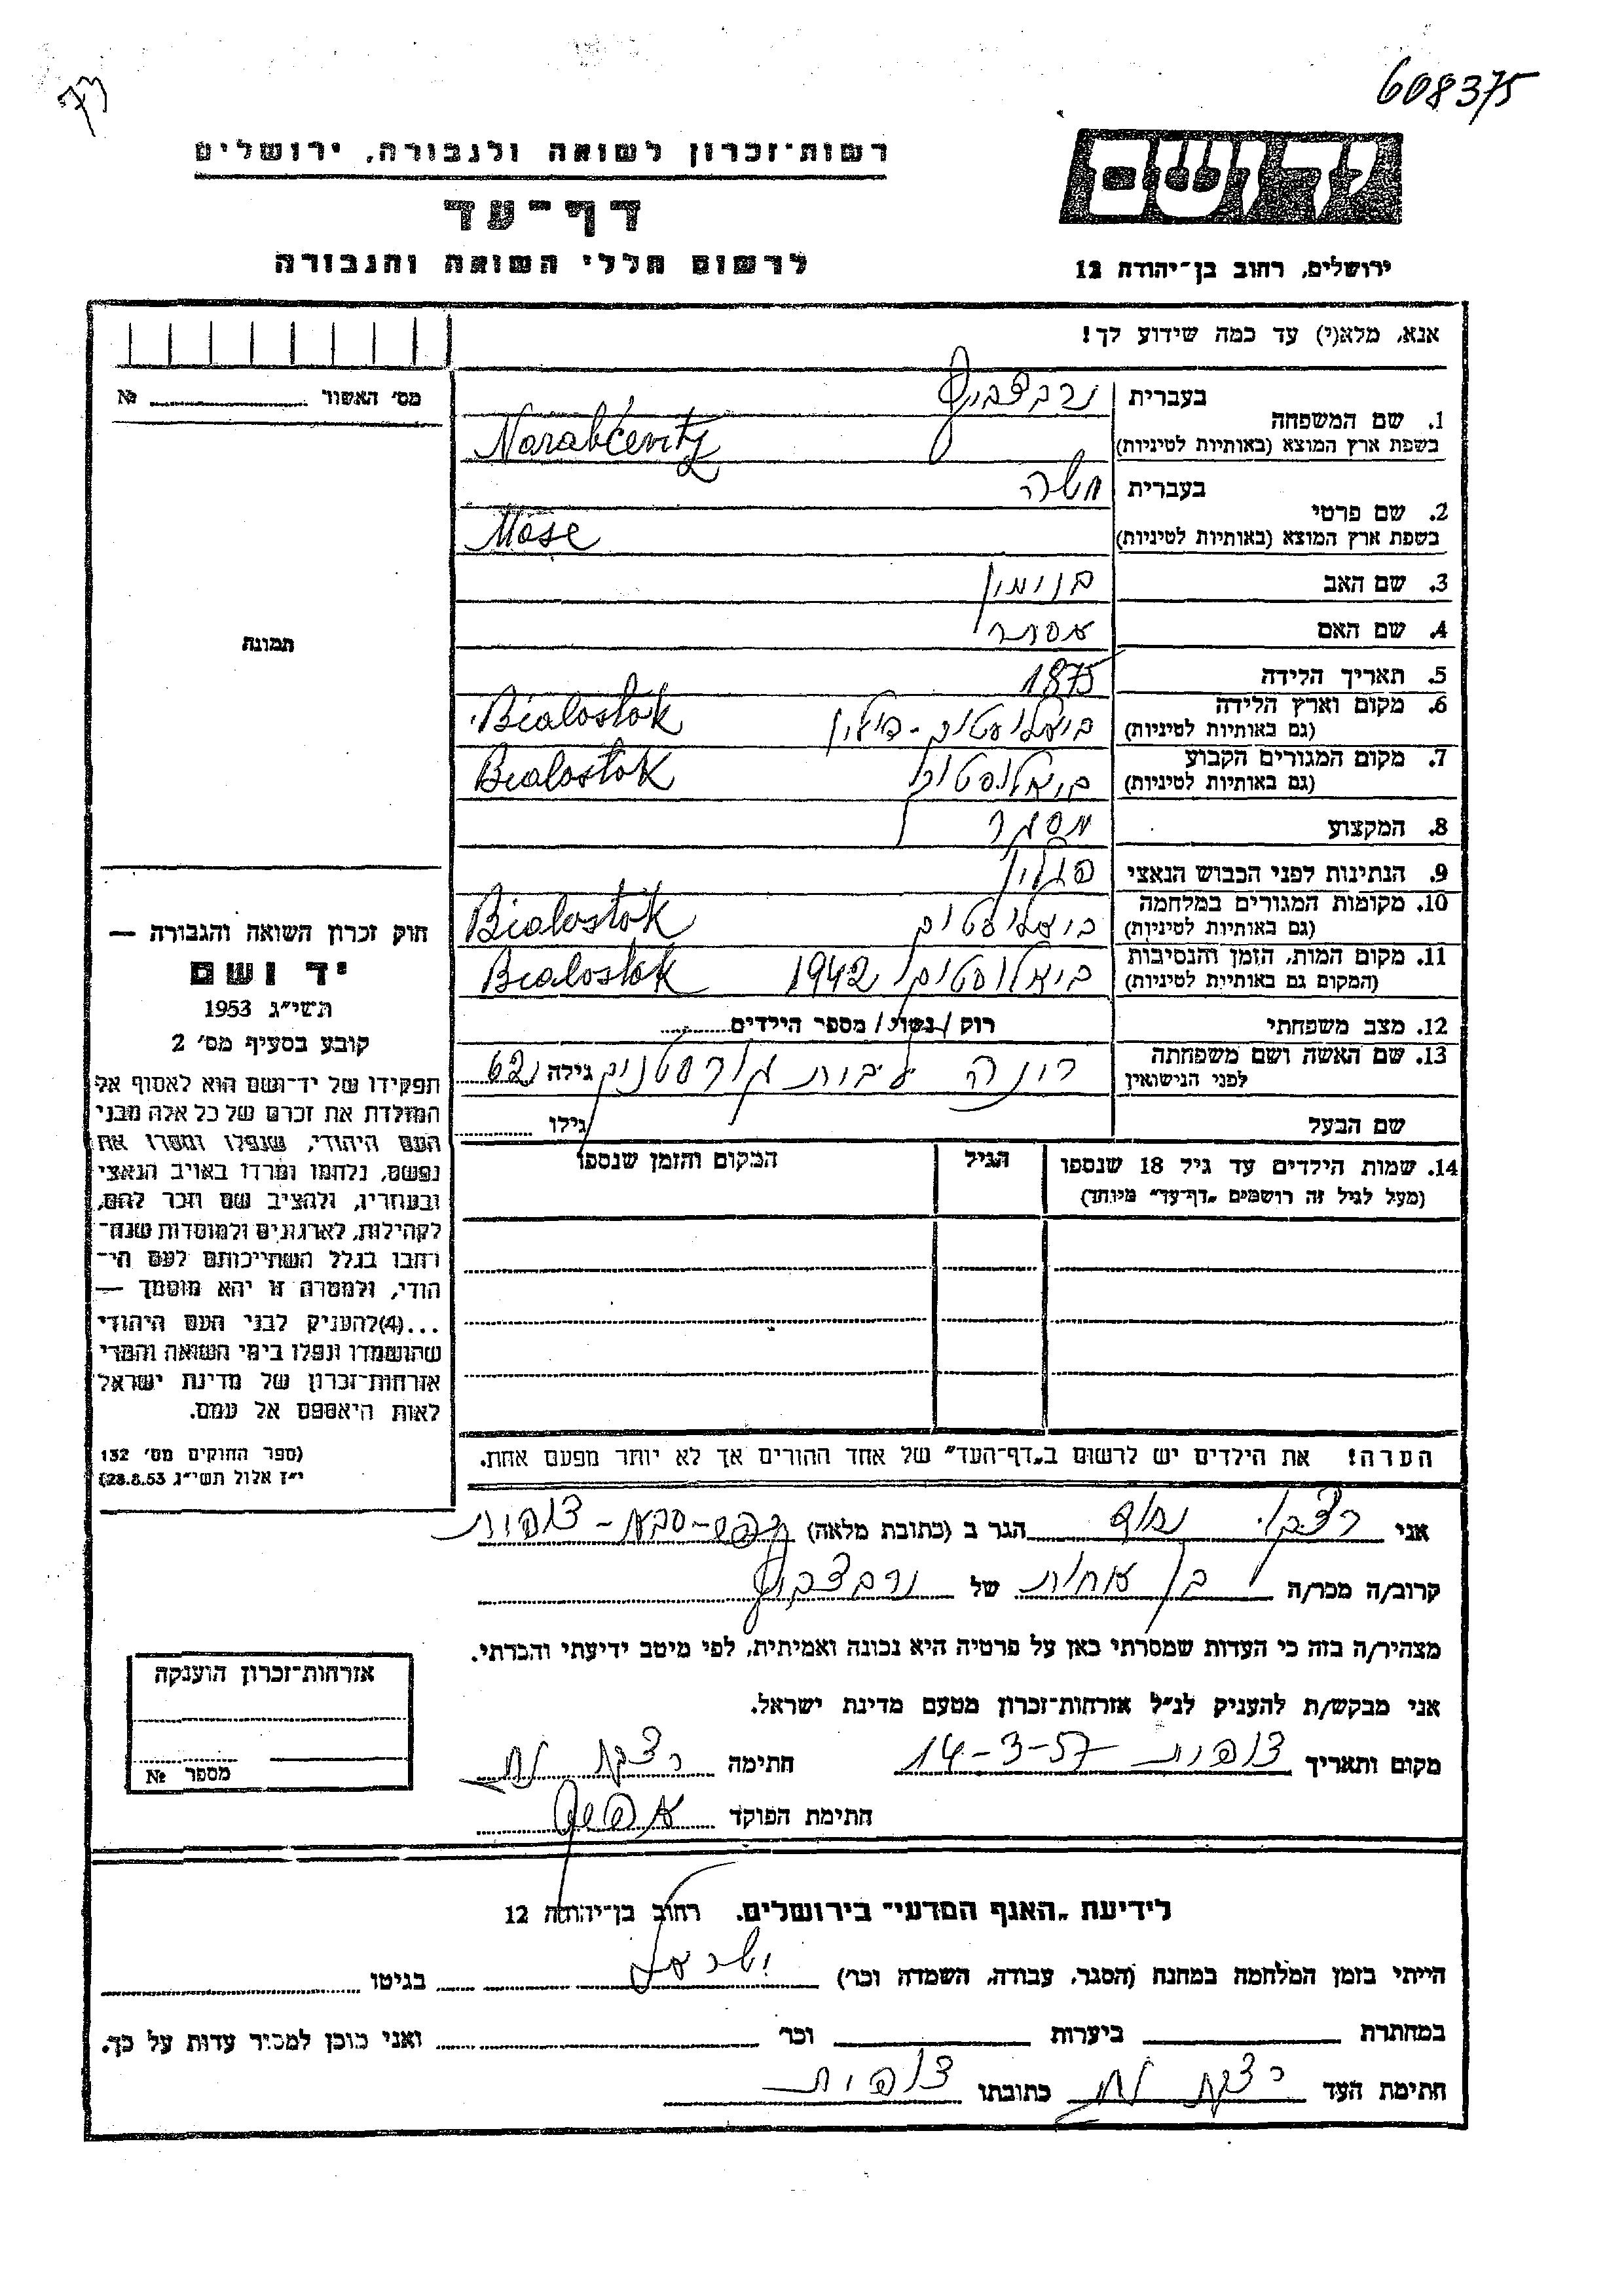 608375
רשות־זכרון לשואה ולגבורה, ירושלים
דף־עד
לרשום חללי השואה והגבורה
יד ושם
ירושלים, רחוב בן־יהודה 12
אנא, מלא(י) עד כמה שידוע לך!
מס׳ האשור № 
1. שם המשפחה בעברית
בשפת ארץ המוצא (באותיות לטיניות) Narabcevitz
2. שם פרטי בעברית משה
בשפת ארץ המוצא (באותיות לטיניות) Mose
3. שם האב בנימין
4. שם האם אסתר
5. תאריך הלידה 1875
6. מקום וארץ הלידה (גם באותיות לטיניות) ביאלוסטוק - פולין Bialostok
7. מקום המגורים הקבוע (גם באותיות לטיניות) ביאלוסטוק Bialostok
8. המקצוע מסחר
9. הנתינות לפני הכבוש הנאצי פולין
10. מקומות המגורים במלחמה (גם באותיות לטיניות) ביאלוסטוק Bialostok
11. מקום המות, הזמן והנסיבות (המקום גם באותיות לטיניות) ביאלוסטוק 1942 Bialostok
12. מצב משפחתי רוק / נשוי / מספר הילדים
13. שם האשה ושם משפחתה לפני הנישואין לבית גילה 62
שם הבעל גילו
14. שמות הילדים עד גיל 18 שנספו (מעל לגיל זה רושמים „דף־עד״ מיוחד) הגיל המקום והזמן שנספו
הערה! את הילדים יש לרשום ב„דף־העד״ של אחד ההורים אך לא יותר מפעם אחת.
תמונה
חוק זכרון השואה והגבורה —
יד ושם
תשי״ג 1953
קובע בסעיף מס׳ 2
תפקידו של יד־ושם הוא לאסוף אל
המולדת את זכרם של כל אלה מבני
העם היהודי, שנפלו ומסרו את
נפשם, נלחמו ומרדו באויב הנאצי
ובעוזריו, ולהציב שם וזכר להם,
לקהילות, לארגונים ולמוסדות שנח־
רבו בגלל השתייכותם לעם הי־
הודי, ולמטרה זו יהא מוסמך —
...(4) להעניק לבני העם היהודי
שהושמדו ונפלו בימי השואה והמרי
אזרחות־זכרון של מדינת ישראל
לאות היאספם אל עמם.
(ספר החוקים מס׳ 132
י״ז אלול תשי״ג 28.8.53)
אני הגר ב (כתובת מלאה) כפר-סבא - צופית
קרוב/ה מכר/ה בן אחות של
מצהיר/ה בזה כי העדות שמסרתי כאן על פרטיה היא נכונה ואמיתית, לפי מיטב ידיעתי והכרתי.
אני מבקש/ת להעניק לנ״ל אזרחות־זכרון מטעם מדינת ישראל.
מקום ותאריך צופית 14-3-57 חתימה
חתימת הפוקד
אזרחות־זכרון הוענקה
מספר №
לידיעת „האגף המדעי״ בירושלים. רחוב בן־יהודה 12
הייתי בזמן המלחמה במחנה (הסגר, עבודה, השמדה וכר׳) ישראל בגיטו
במחתרת ביערות וכר׳ ואני מוכן למסיר עדות על כך.
חתימת העד כתובתו צופית